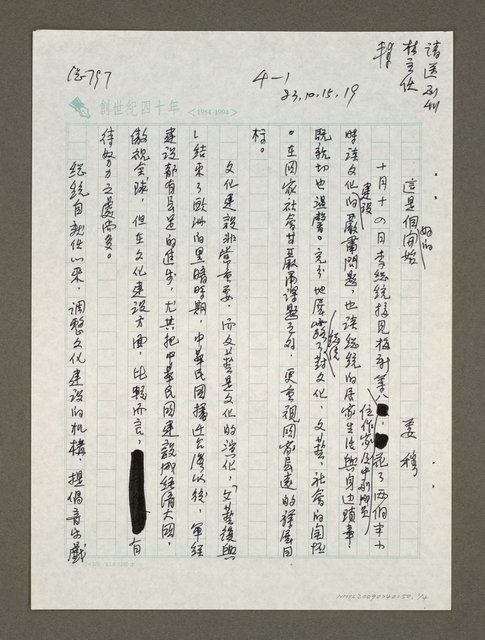 請送副刊
林主任
創世紀四十年
<1954-1994>
4-1
83.10.15,19
這是個開始
好的
姜穆
十月十四日李總統接見梅新等八
位作家
花了兩個半小
時談文化建設的嚴肅問題,也談總統的居家生活與身邊瑣事,
既親切也溫馨。充分地展露了總統對文化、文藝、社會的關懷
。在國家社會甘嚴肅課題之外,更重視國家長遠的發展目
標。
文化建設非常重要,而文藝是文化的淨化,「文藝復興
」結束了歐洲的黑暗時期,中華民國播遷台灣以後,軍經
建設都有長足的進步,尤其把中華民國建設成經濟大國,
傲視全球,但在文化建設方面,比較而言,有
待努力之處尚多。
總統自就任以來,調整文化建設的機構,提倡音樂戲
NMTL20090240150, 1/4